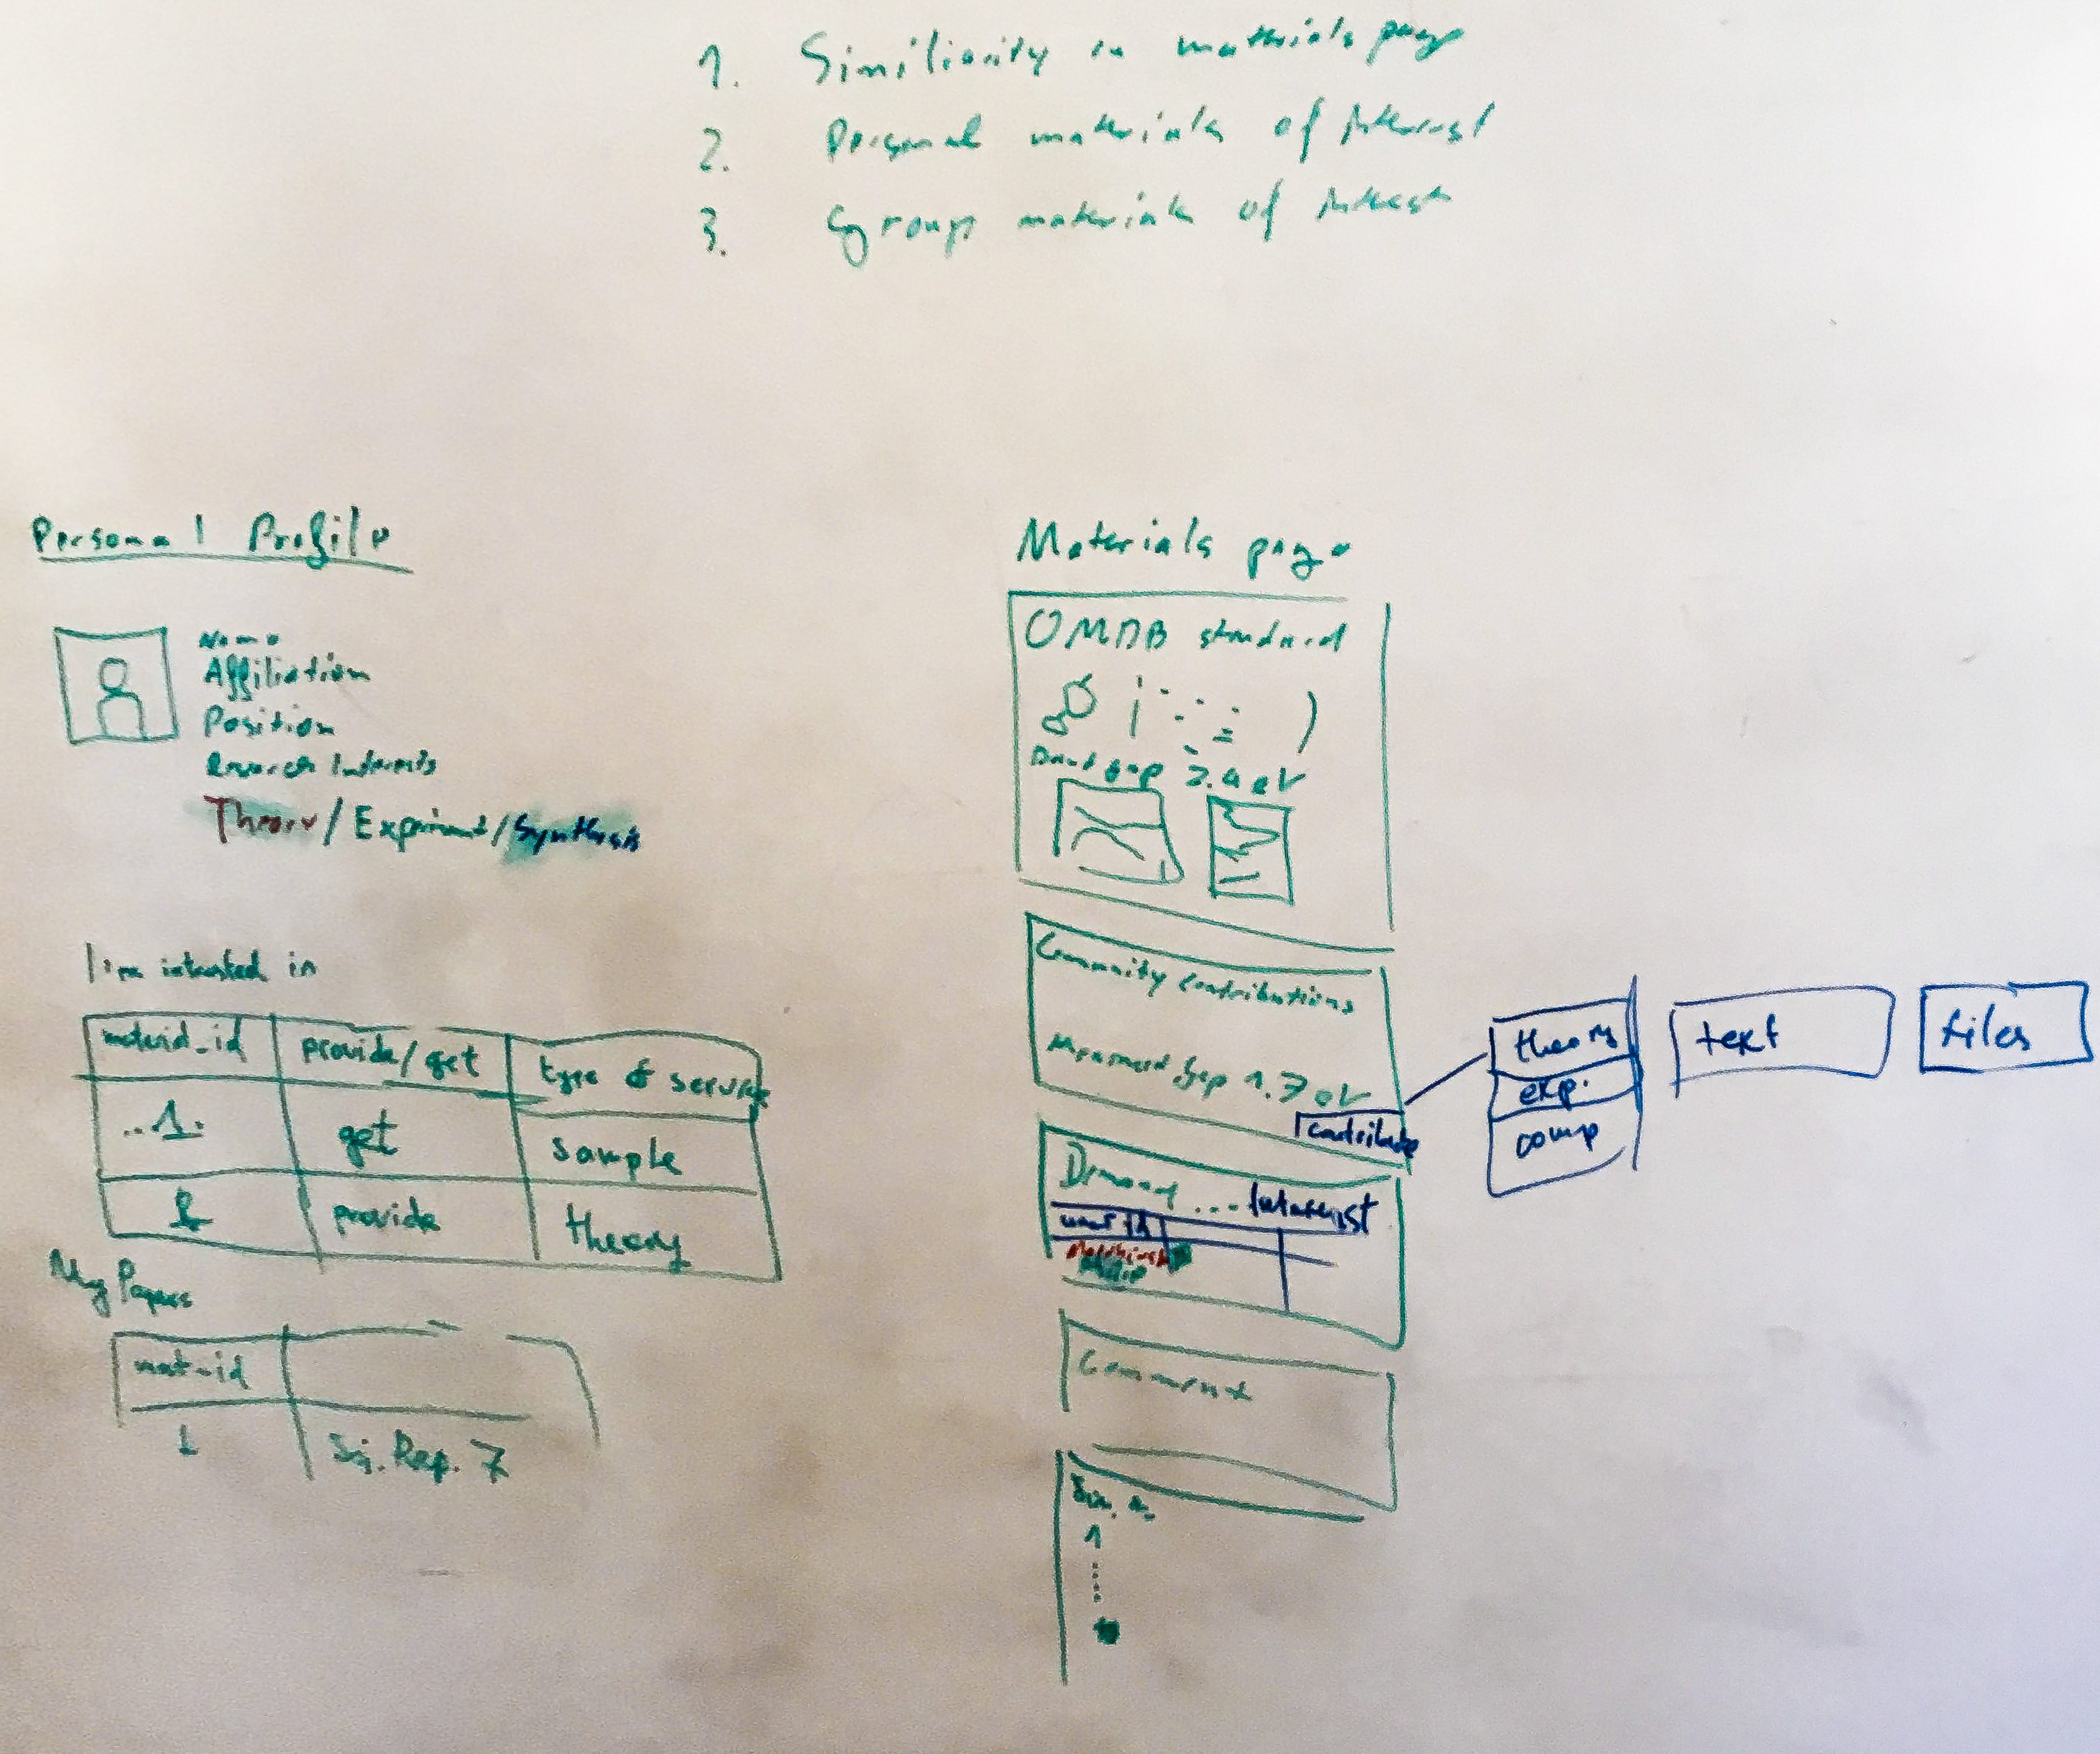 1. Similiarity in materials page
2. Personal materials of interest
3. Group materials of interest
Personal Profile
Name
Affiliation
Position
Research Interests
Theory / Experiment / Synthesis
I'm interested in
material_id provide/get type of service
..1. get sample
provide theory
My Papers
mat-id
1 Sci. Rep. 7
Materials page
OMDB standard
Band gap 2.4 eV
Community contributions
Measured gap 1.7 eV
contribute
theory
exp.
comp
text
files
Demand ... Interest
user id
Comment
1